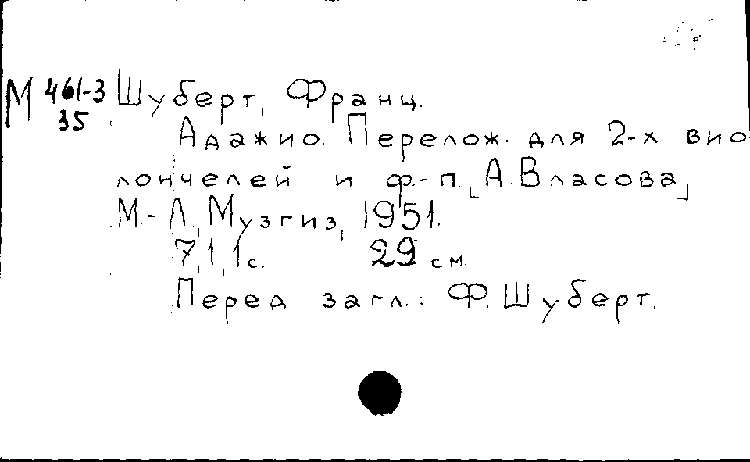 М 461-3 Шуберт, Франц.
35
Адажио. Перелож. для 2-х вио
лончелей и ф.-п. [А. Власова]
М.-Л., Музгиз, 1951.
7,1,1 с. 29 см.
Перед загл.: Ф. Шуберт.